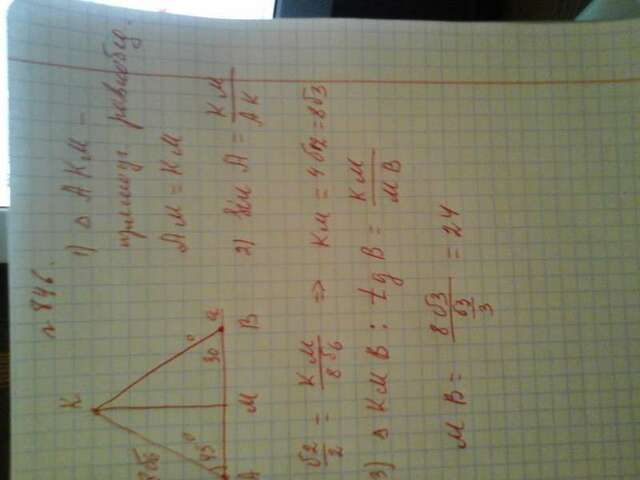 № 846.
K
8√6
45°
30°
a
A M B
1) △ AKM –
прямоуг. равнобед.
AM = KM
2) sin A = KM / AK
√2/2 = KM / 8√6 => KM = 4√12 = 8√3
3) △ KMB : tg B = KM / MB
MB = 8√3 / (√3/3) = 24